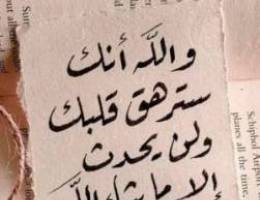 والله أنك
سترهق قلبك
ولن يحدث
إلا ما شاء الله
Schiphol Airport
planes all the time,